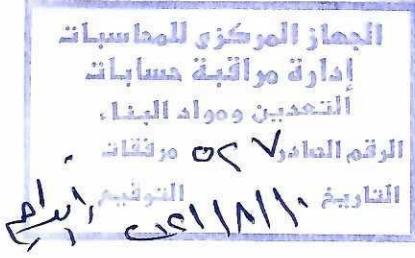 الجهاز المركزى للمحاسبات
إدارة مراقبة حسابات
التعدين ومواد البناء
الرقم الصادر ٥٢٧ مرفقات
التاريخ ٢٠٢١/٨/١٠ التوقيع